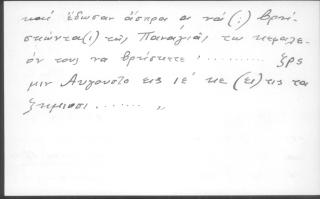 καί ἔδωσαν ἄσπρα οἱ νά (;) βρή-
σκώντα(ι) τῶς Παναγιᾶς τω κεφαλε-
όν τους να βρήσκετε ; ......... ζρς
μιν Αυγουστο εις ιε΄ κε (εἰ)τις τα
ζημιοσι ....... „